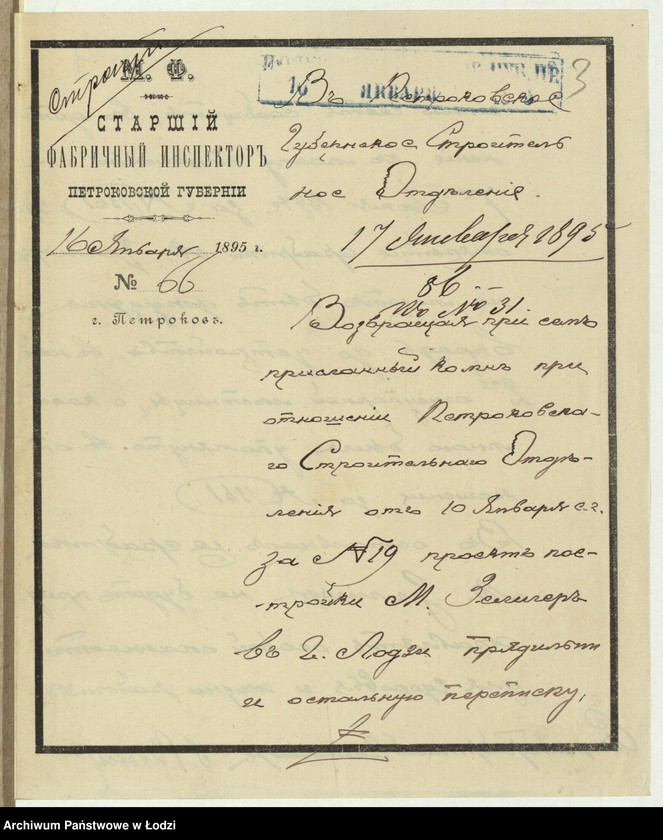 Строит
М. Ф.
СТАРШІЙ
ФАБРИЧНЫЙ ИНСПЕКТОРЪ
ПЕТРОКОВСКОЙ ГУБЕРНІИ
16 Января 1895 г.
№ 66
г. Петроковъ.
16 ЯНВАРЯ
3
Въ Петроковское
Губернское Строитель
ное Отдѣленіе.
17 Января 1895
№ 31
Возвращая при семъ
присланный ко мнѣ при
отношеніи Петроковска-
го Строительнаго Отдѣ-
ленія отъ 10 Января с.г.
за № 19 проэктъ пос-
тройки М. Зелигеръ
въ г. Лодзи прядильни
и остальную переписку,
Archiwum Państwowe w Łodzi